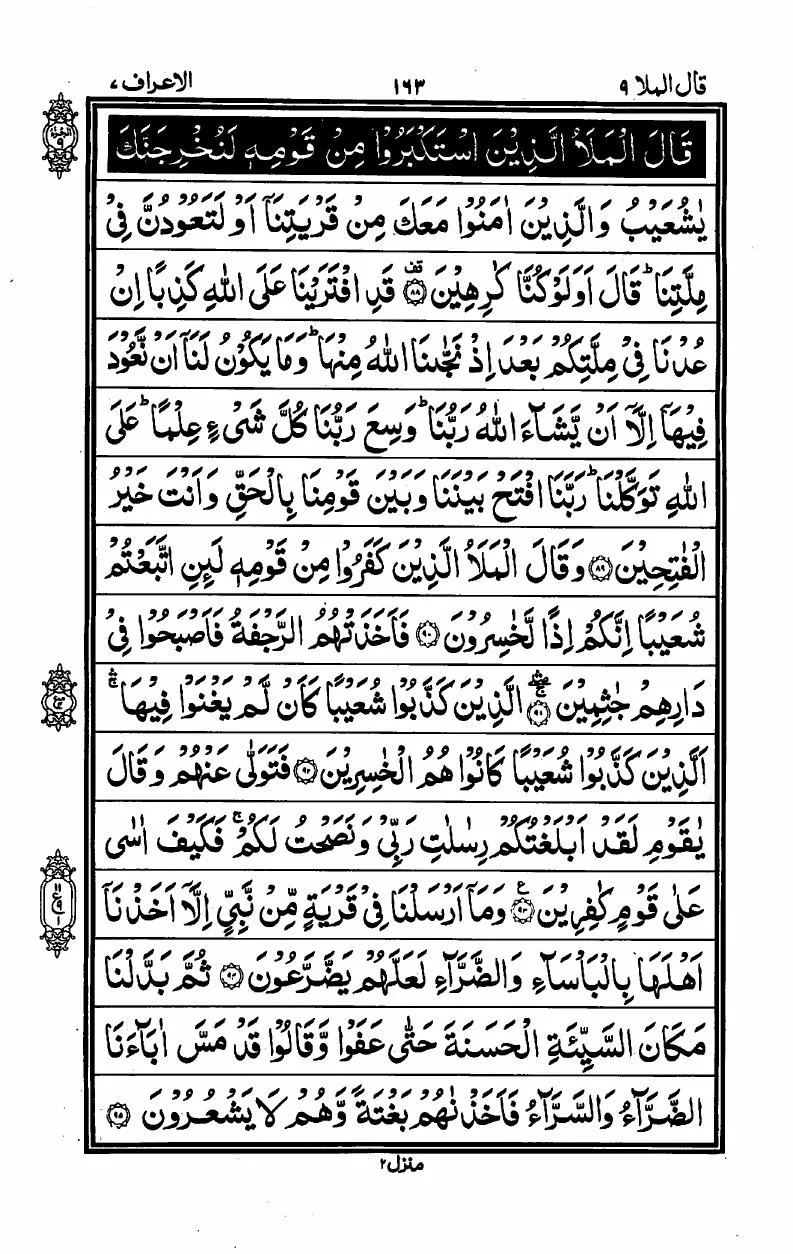 قال الملا ٩
١٦٣
الاعراف ٧
الجزء ٩
قَالَ الْمَلَاُ الَّذِيْنَ اسْتَكْبَرُوْا مِنْ قَوْمِهٖ لَنُخْرِجَنَّكَ
يٰشُعَيْبُ وَالَّذِيْنَ اٰمَنُوْا مَعَكَ مِنْ قَرْيَتِنَاۤ اَوْ لَتَعُوْدُنَّ فِيْ
مِلَّتِنَا ؕ قَالَ اَوَلَوْ كُنَّا كٰرِهِيْنَ ۟قف ﴿٨٨﴾ قَدِ افْتَرَيْنَا عَلَى اللّٰهِ كَذِبًا اِنْ
عُدْنَا فِيْ مِلَّتِكُمْ بَعْدَ اِذْ نَجّٰىنَا اللّٰهُ مِنْهَا ؕ وَمَا يَكُوْنُ لَنَاۤ اَنْ نَّعُوْدَ
فِيْهَاۤ اِلَّاۤ اَنْ يَّشَآءَ اللّٰهُ رَبُّنَا ؕ وَسِعَ رَبُّنَا كُلَّ شَيْءٍ عِلْمًا ؕ عَلَى
اللّٰهِ تَوَكَّلْنَا ؕ رَبَّنَا افْتَحْ بَيْنَنَا وَبَيْنَ قَوْمِنَا بِالْحَقِّ وَاَنْتَ خَيْرُ
الْفٰتِحِيْنَ ﴿٨٩﴾ وَقَالَ الْمَلَاُ الَّذِيْنَ كَفَرُوْا مِنْ قَوْمِهٖ لَئِنِ اتَّبَعْتُمْ
شُعَيْبًا اِنَّكُمْ اِذًا لَّخٰسِرُوْنَ ﴿٩٠﴾ فَاَخَذَتْهُمُ الرَّجْفَةُ فَاَصْبَحُوْا فِيْ
دَارِهِمْ جٰثِمِيْنَ ﴿٩١﴾ الَّذِيْنَ كَذَّبُوْا شُعَيْبًا كَاَنْ لَّمْ يَغْنَوْا فِيْهَا ۚ
اَلَّذِيْنَ كَذَّبُوْا شُعَيْبًا كَانُوْا هُمُ الْخٰسِرِيْنَ ﴿٩٢﴾ فَتَوَلّٰى عَنْهُمْ وَقَالَ
يٰقَوْمِ لَقَدْ اَبْلَغْتُكُمْ رِسٰلٰتِ رَبِّيْ وَنَصَحْتُ لَكُمْ ۚ فَكَيْفَ اٰسٰى
عَلٰى قَوْمٍ كٰفِرِيْنَ ﴿٩٣﴾ ع وَمَاۤ اَرْسَلْنَا فِيْ قَرْيَةٍ مِّنْ نَّبِيٍّ اِلَّاۤ اَخَذْنَاۤ
اَهْلَهَا بِالْبَاْسَآءِ وَالضَّرَّآءِ لَعَلَّهُمْ يَضَّرَّعُوْنَ ﴿٩٤﴾ ثُمَّ بَدَّلْنَا
مَكَانَ السَّيِّئَةِ الْحَسَنَةَ حَتّٰى عَفَوْا وَّقَالُوْا قَدْ مَسَّ اٰبَآءَنَا
الضَّرَّآءُ وَالسَّرَّآءُ فَاَخَذْنٰهُمْ بَغْتَةً وَّهُمْ لَا يَشْعُرُوْنَ ﴿٩٥﴾
١١
ع ٩
١
منزل ٢